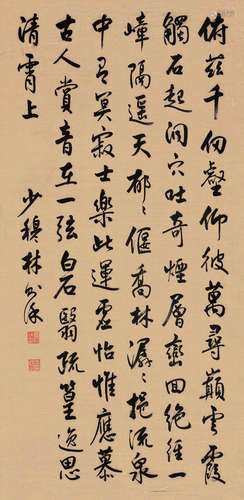 俯茲千仞壑仰彼萬尋巔雲霞
觸石起洞穴吐奇煙層巒回絕徑一
嶂隔遥天郁〻偃喬林潺〻挹流泉
中有冥寂士樂此運虛怡惟應慕
古人賞音在一弦白石翳疏篁逸思
清霄上
少穆林則徐